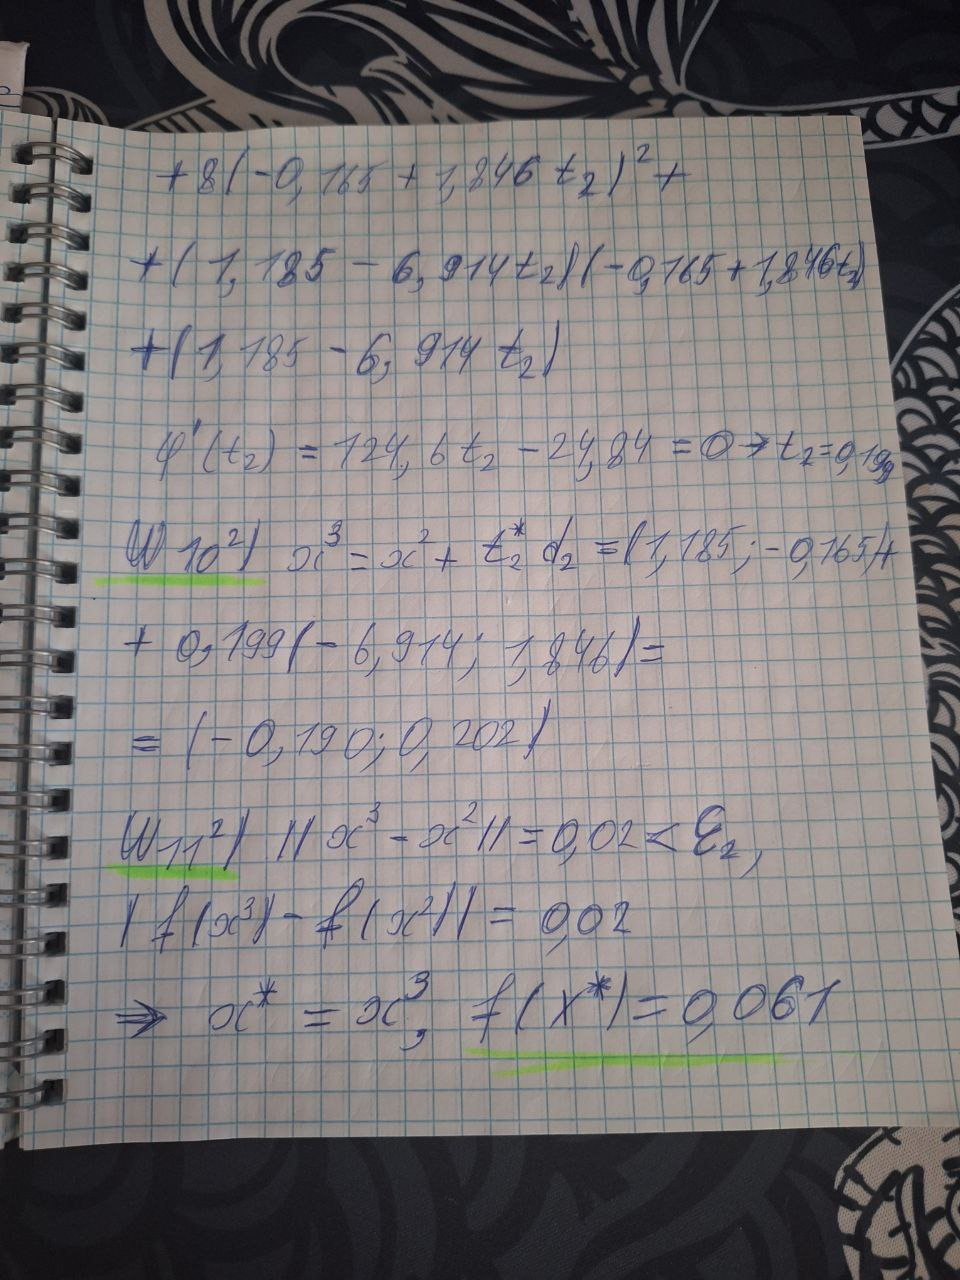 +8(-0,165+1,846 t₂)²+
+(1,185-6,914t₂)(-0,165+1,846t₂)
+(1,185-6,914 t₂)
φ'(t₂)=124,6t₂-24,84=0→t₂=0,199
Ш10²) x³=x²+t₂*d₂=(1,185;-0,165)+
+0,199(-6,914; 1,846)=
=(-0,190;0,202)
Ш11²) ||x³-x²||=0,02<ε₂,
|f(x³)-f(x²)|=0,02
⇒ x*=x³, f(x*)=0,061